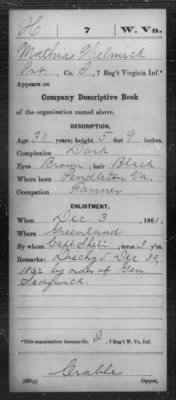 H 7 W. Va.
Mathias Helmick
Pvt., Co. I, 7 Reg't Virginia Inf.*
Appears on
Company Descriptive Book
of the organization named above.
DESCRIPTION.
Age 30 years; height 5 feet 9 inches.
Complexion Dark
Eyes Brown; hair Black
Where born Pendleton Va.
Occupation Farmer
ENLISTMENT.
When Dec 3, 1861.
Where Greenland
By whom Capt ; term 3 y'rs.
Remarks: Dischg'd Dec 30,
1862 by order of Gen
Sedgwick.
*This organization became Co. I, 7 Reg't W. Va. Inf.
Crable
Copyist.